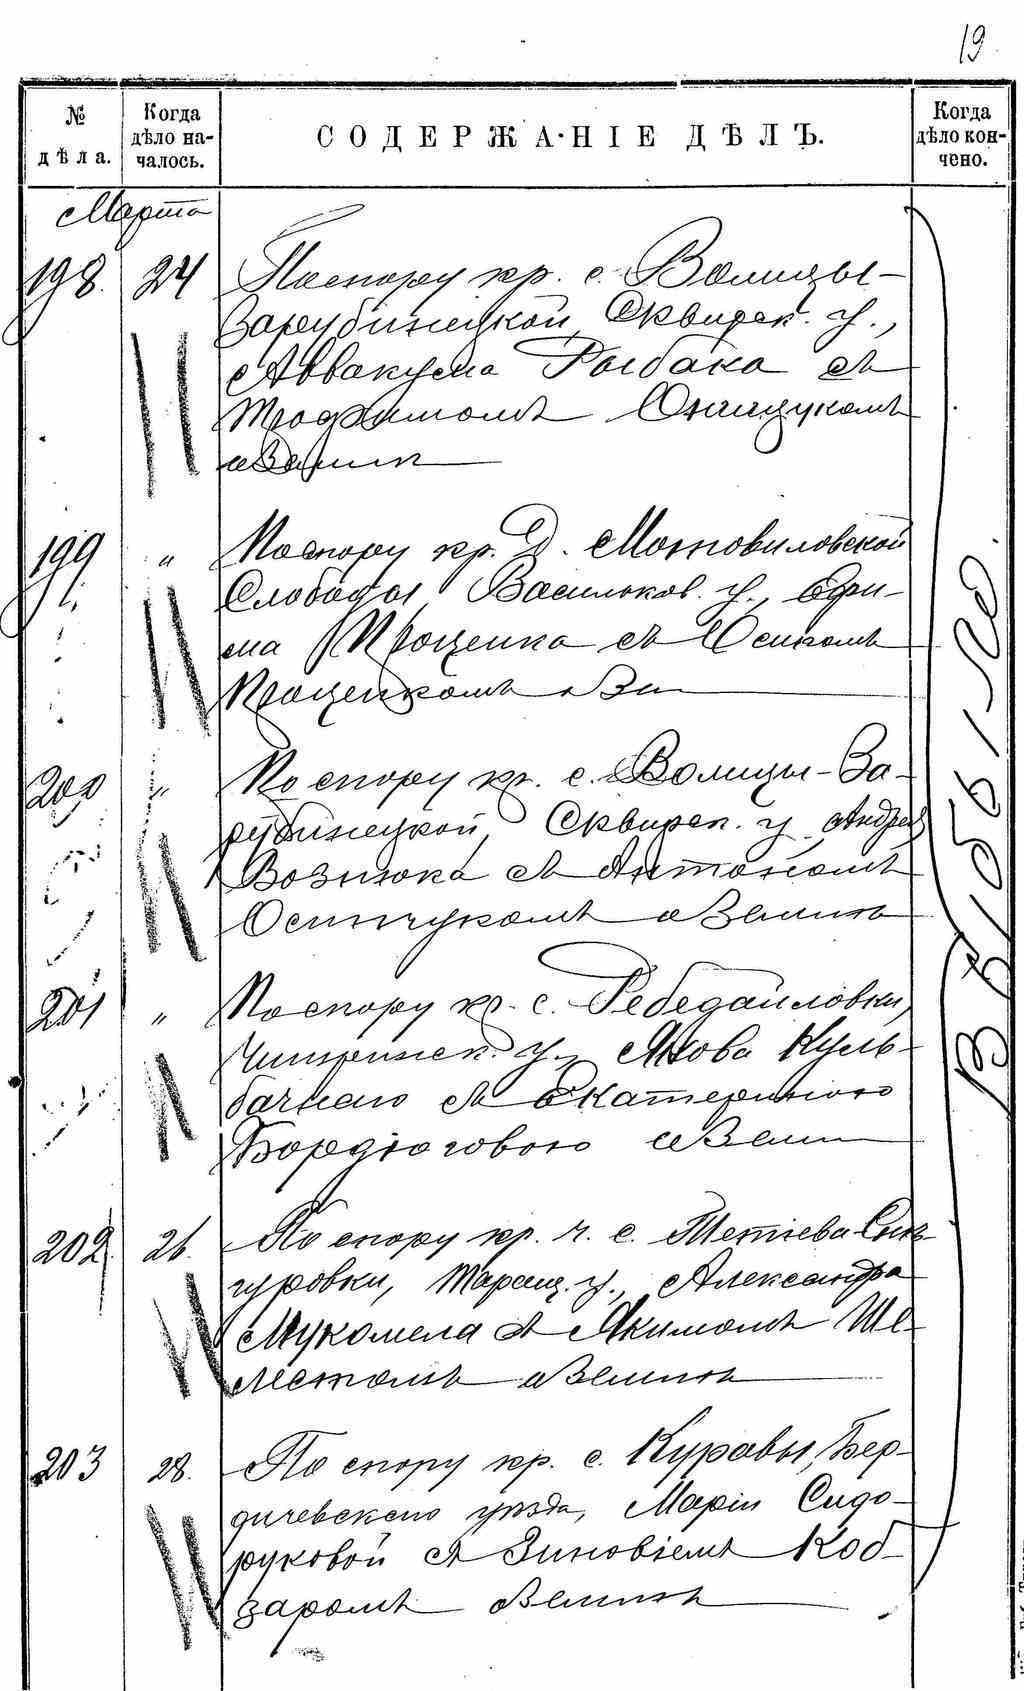 19
№ дѣла.
Когда дѣло началось.
СОДЕРЖАНІЕ ДѢЛЪ.
Когда дѣло кончено.
Марта
198. 24 По спору кр. с. Волицы-
Зарубинецкой, Сквирск. у.,
Аввакума Рыбака съ
Трофимомъ Онищукомъ
о земли
199 " По спору кр. д. Мотовиловской
Слободы Васильков. у., Ефи-
ма Проценка съ Осипомъ
Проценкомъ о зем
200 " По спору кр. с. Волицы-За-
рубинецкой, Сквирск. у. Андрея
Вознюка съ Антономъ
Осипчукомъ о земли
201 " По спору кр. с. Ребедайловки,
Чигринск. у., Якова Куль-
бачнаго съ Екатериною
Бордюговою о земли
202 26. По спору кр. ч. с. Тетіева-Сни-
гуровки, Таращ. у., Александра
Мукомела съ Якимомъ Ше-
лестомъ о земли
203 28. По спору кр. с. Куравы, Бер-
дичевскаго уѣзда, Маріи Сидо-
руковой съ Зиновіемъ Коб-
заромъ о земли
Выбыло.